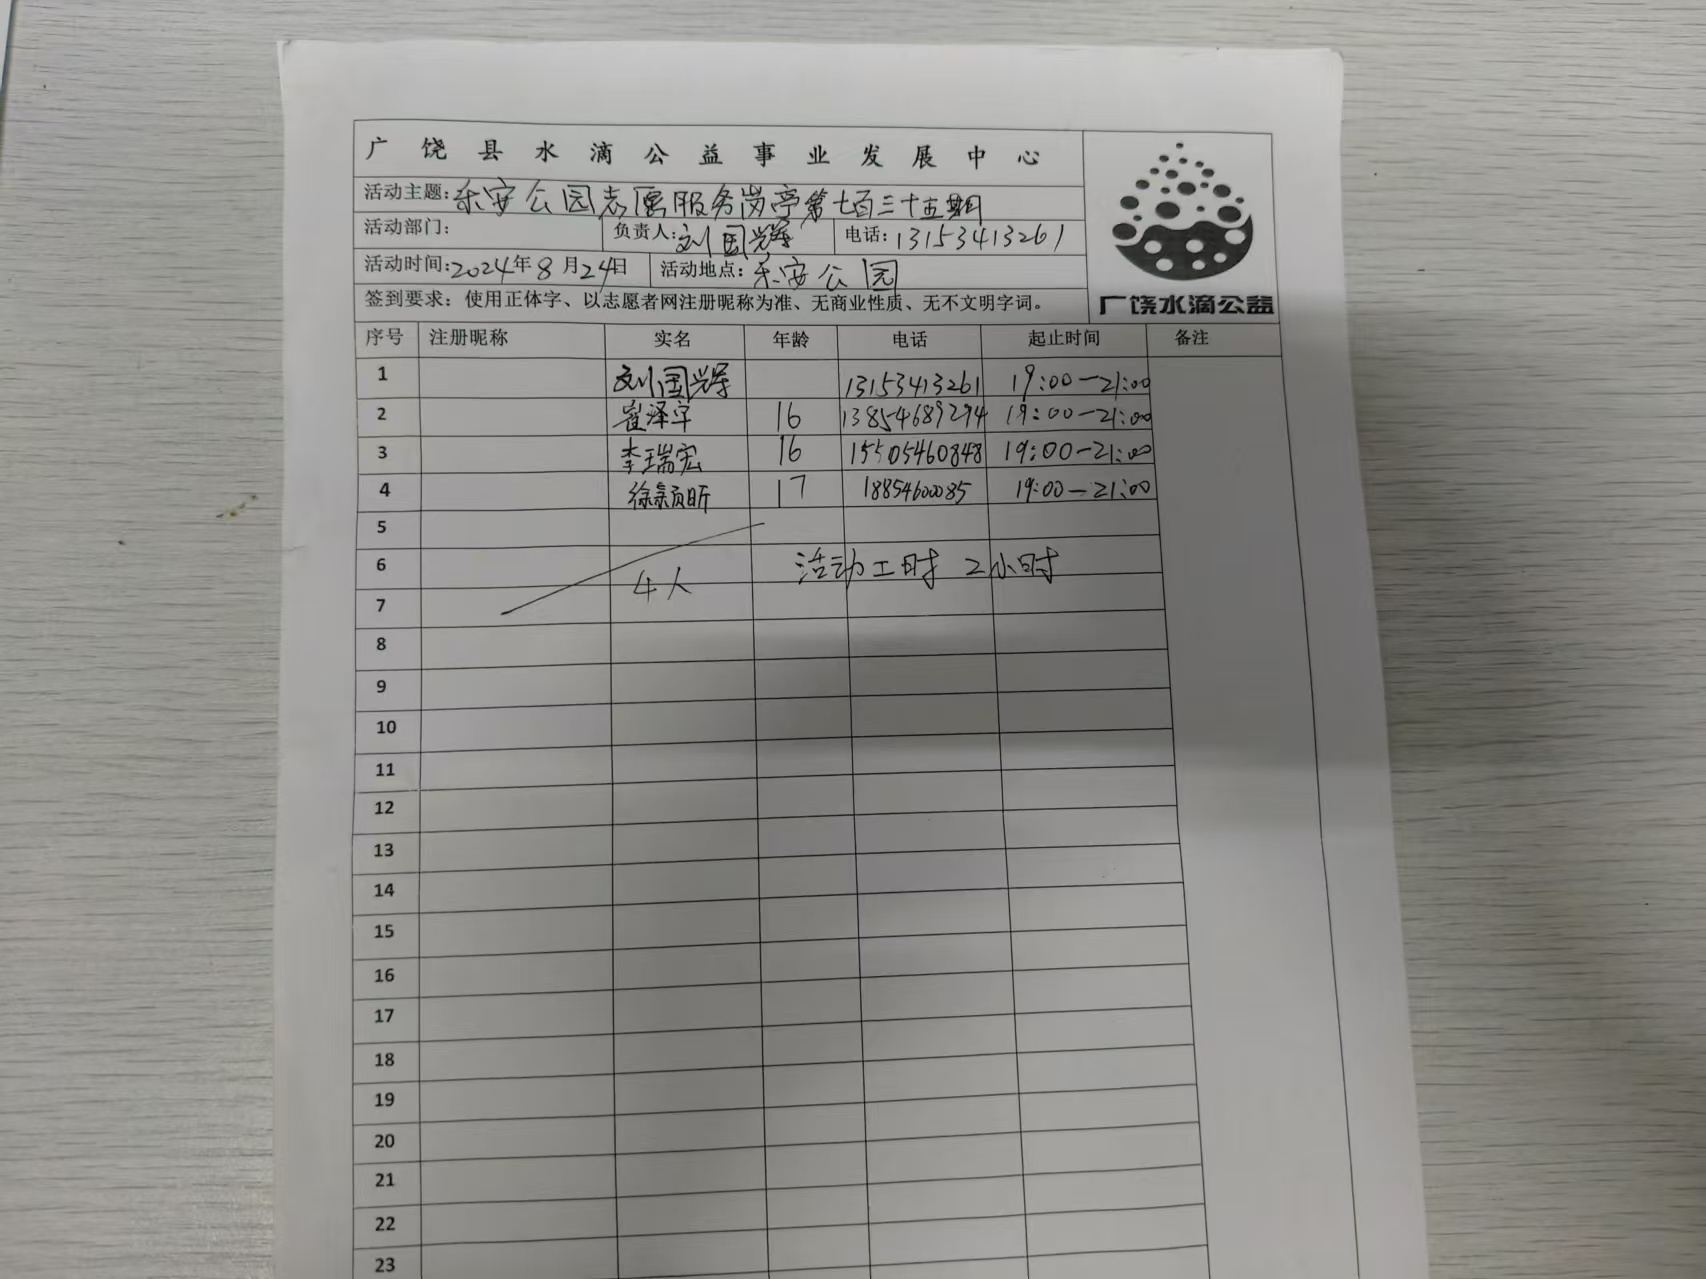 广饶县水滴公益事业发展中心
活动主题:乐安公园志愿服务岗亭第七百三十五期
活动部门: 负责人:刘国辉 电话:13153413261
活动时间:2024年8月24日 活动地点:乐安公园
签到要求：使用正体字、以志愿者网注册昵称为准、无商业性质、无不文明字词。
广饶水滴公益
序号 注册昵称 实名 年龄 电话 起止时间 备注
1 刘国辉 13153413261 19:00-21:00
2 崔泽宇 16 13854689294 19:00-21:00
3 李瑞宏 16 15505460848 19:00-21:00
4 徐颢昕 17 1885460085 19:00-21:00
5
6 4人 活动工时 2小时
7
8
9
10
11
12
13
14
15
16
17
18
19
20
21
22
23